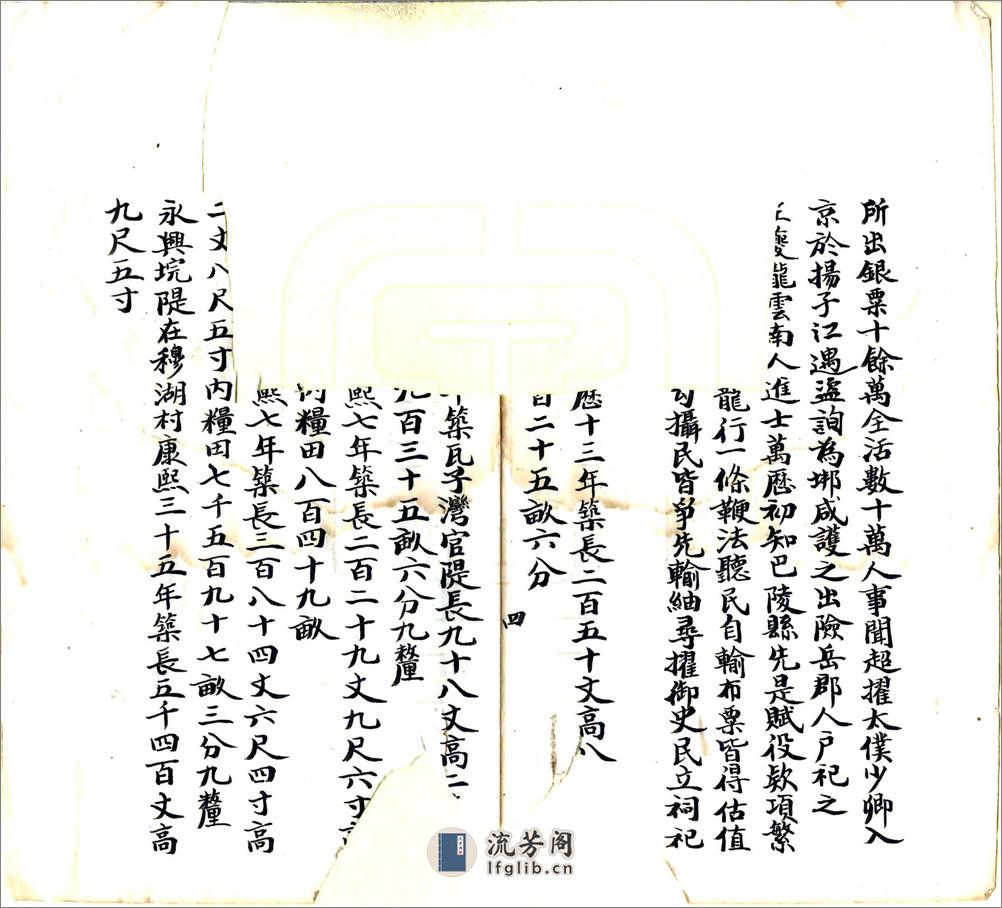 所出銀粟十餘萬全活數十萬人事聞超擢太僕少卿入
京於揚子江遇盜詢為堋咸護之出險岳郡人戶祀之
夔龍雲南人進士萬歷初知巴陵縣先是賦役欵項繁
龍行一條鞭法聽民自輸布粟皆得估值
勾攝民皆爭先輸紬尋擢御史民立祠祀
歷十三年築長二百五十丈高八
百二十五畝六分
四
年築瓦子灣官隄長九十八丈高二
九百三十五畝六分九釐
熙七年築長二百二十九丈九尺六寸高
內糧田八百四十九畝
熙七年築長三百八十四丈六尺四寸高
二丈八尺五寸內糧田七千五百九十七畝三分九釐
永興垸隄在穆湖村康熙三十五年築長五千四百丈高
九尺五寸
流芳阁
lfglib.cn